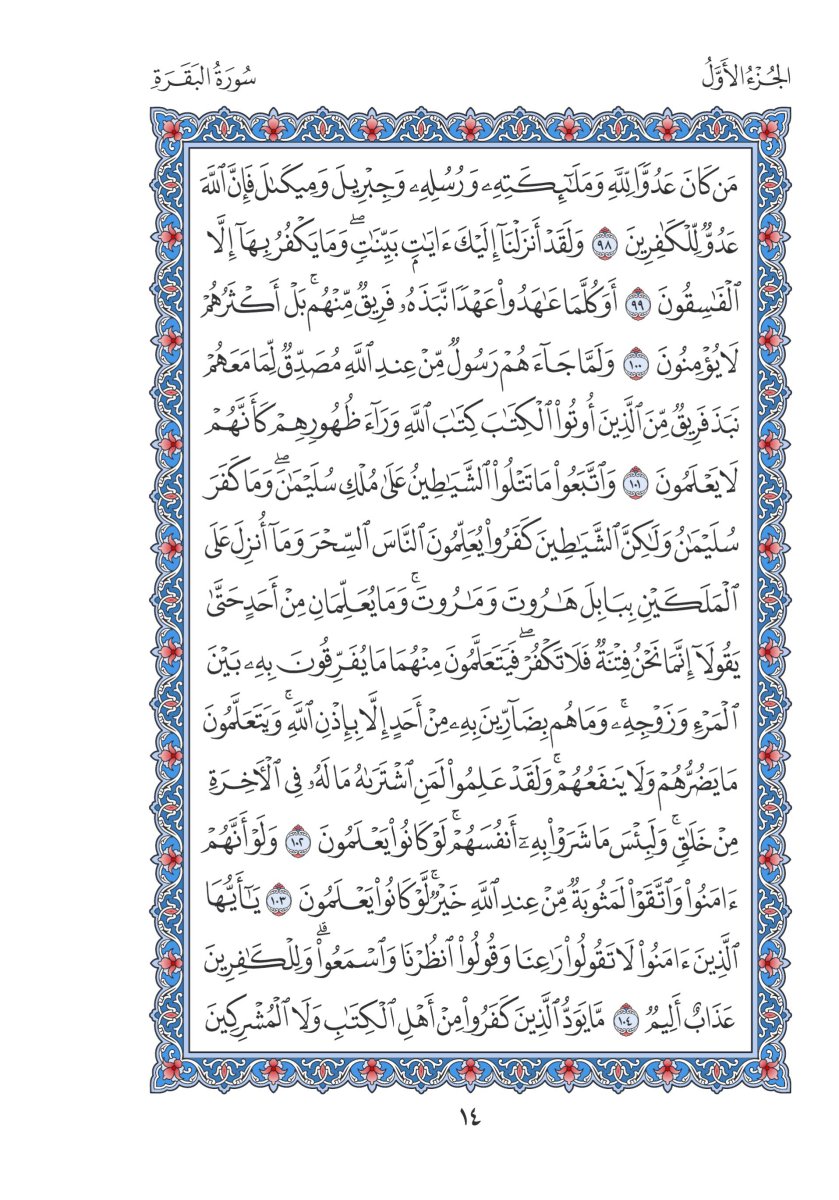 الجُزْءُ الأَوَّلُ
سُورَةُ البَقَرَةِ
مَن كَانَ عَدُوًّا لِّلَّهِ وَمَلَٰٓئِكَتِهِۦ وَرُسُلِهِۦ وَجِبْرِيلَ وَمِيكَىٰلَ فَإِنَّ ٱللَّهَ
عَدُوٌّ لِّلْكَٰفِرِينَ ٩٨ وَلَقَدْ أَنزَلْنَآ إِلَيْكَ ءَايَٰتٍۭ بَيِّنَٰتٍۖ وَمَا يَكْفُرُ بِهَآ إِلَّا
ٱلْفَٰسِقُونَ ٩٩ أَوَكُلَّمَا عَٰهَدُوا۟ عَهْدًا نَّبَذَهُۥ فَرِيقٌ مِّنْهُمۚ بَلْ أَكْثَرُهُمْ
لَا يُؤْمِنُونَ ١٠٠ وَلَمَّا جَآءَهُمْ رَسُولٌ مِّنْ عِندِ ٱللَّهِ مُصَدِّقٌ لِّمَا مَعَهُمْ
نَبَذَ فَرِيقٌ مِّنَ ٱلَّذِينَ أُوتُوا۟ ٱلْكِتَٰبَ كِتَٰبَ ٱللَّهِ وَرَآءَ ظُهُورِهِمْ كَأَنَّهُمْ
لَا يَعْلَمُونَ ١٠١ وَٱتَّبَعُوا۟ مَا تَتْلُوا۟ ٱلشَّيَٰطِينُ عَلَىٰ مُلْكِ سُلَيْمَٰنَۖ وَمَا كَفَرَ
سُلَيْمَٰنُ وَلَٰكِنَّ ٱلشَّيَٰطِينَ كَفَرُوا۟ يُعَلِّمُونَ ٱلنَّاسَ ٱلسِّحْرَ وَمَآ أُنزِلَ عَلَى
ٱلْمَلَكَيْنِ بِبَابِلَ هَٰرُوتَ وَمَٰرُوتَۚ وَمَا يُعَلِّمَانِ مِنْ أَحَدٍ حَتَّىٰ
يَقُولَآ إِنَّمَا نَحْنُ فِتْنَةٌ فَلَا تَكْفُرْۖ فَيَتَعَلَّمُونَ مِنْهُمَا مَا يُفَرِّقُونَ بِهِۦ بَيْنَ
ٱلْمَرْءِ وَزَوْجِهِۦۚ وَمَا هُم بِضَآرِّينَ بِهِۦ مِنْ أَحَدٍ إِلَّا بِإِذْنِ ٱللَّهِۚ وَيَتَعَلَّمُونَ
مَا يَضُرُّهُمْ وَلَا يَنفَعُهُمْۚ وَلَقَدْ عَلِمُوا۟ لَمَنِ ٱشْتَرَىٰهُ مَا لَهُۥ فِى ٱلْأَخِرَةِ
مِنْ خَلَٰقٍۚ وَلَبِئْسَ مَا شَرَوْا۟ بِهِۦٓ أَنفُسَهُمْۚ لَوْ كَانُوا۟ يَعْلَمُونَ ١٠٢ وَلَوْ أَنَّهُمْ
ءَامَنُوا۟ وَٱتَّقَوْا۟ لَمَثُوبَةٌ مِّنْ عِندِ ٱللَّهِ خَيْرٌۚ لَّوْ كَانُوا۟ يَعْلَمُونَ ١٠٣ يَٰٓأَيُّهَا
ٱلَّذِينَ ءَامَنُوا۟ لَا تَقُولُوا۟ رَٰعِنَا وَقُولُوا۟ ٱنظُرْنَا وَٱسْمَعُوا۟ۗ وَلِلْكَٰفِرِينَ
عَذَابٌ أَلِيمٌ ١٠٤ مَّا يَوَدُّ ٱلَّذِينَ كَفَرُوا۟ مِنْ أَهْلِ ٱلْكِتَٰبِ وَلَا ٱلْمُشْرِكِينَ
١٤